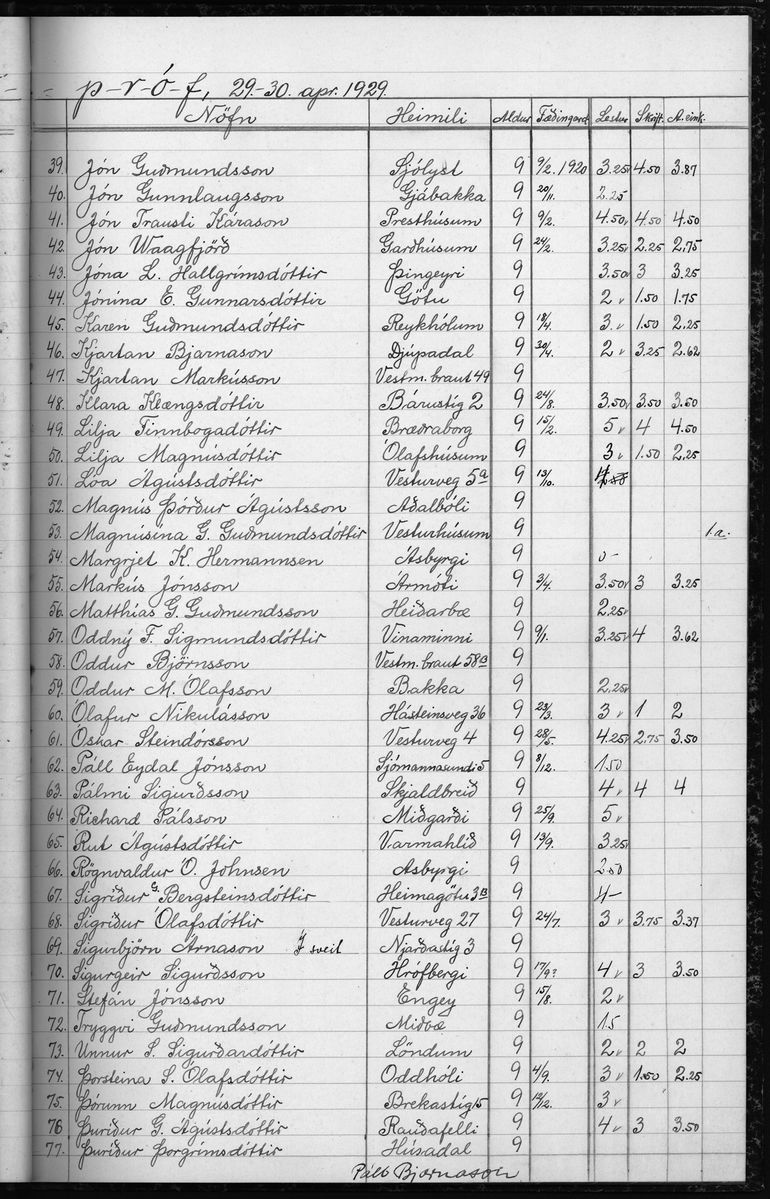 p-r-ó-f, 29.-30. apr. 1929.
Nöfn Heimili Aldur Fæðingard. Lestur Skrift A. eink.
39. Jón Guðmundsson Sjólyst 9 9/2. 1920 3.25v 4.50 3.87
40. Jón Gunnlaugsson Gjábakka 9 20/11. 2.25
41. Jón Trausti Kárason Presthúsum 9 9/2. 4.50v 4.50 4.50
42. Jón Waagfjörð Garðhúsum 9 24/2. 3.25v 2.25 2.75
43. Jóna L. Hallgrímsdóttir Þingeyri 9 3.50v 3 3.25
44. Jónína E. Gunnarsdóttir Götu 9 2 v 1.50 1.75
45. Karen Guðmundsdóttir Reykhólum 9 18/4. 3. v 1.50 2.25
46. Kjartan Bjarnason Djúpadal 9 30/4. 2 v 3.25 2.62
47. Kjartan Markússon Vestm. braut 49 9
48. Klara Klængsdóttir Bárustíg 2 9 24/8. 3.50v 3.50 3.50
49. Lilja Finnbogadóttir Bræðraborg 9 15/2. 5 v 4 4.50
50. Lilja Magnúsdóttir Ólafshúsum 9 3 v 1.50 2.25
51. Lóa Ágústsdóttir Vesturveg 5a 9 13/10.
52. Magnús Þórður Ágústsson Aðalbóli 9
53. Magnúsína G. Guðmundsdóttir Vesturhúsum 9 1.a.
54. Margrjet K. Hermannsen Ásbyrgi 9 0-
55. Markús Jónsson Ármóti 9 3/4. 3.50v 3 3.25
56. Matthías G. Guðmundsson Heiðarbæ 9 2.25v
57. Oddný F. Sigmundsdóttir Vinaminni 9 9/1. 3.25v 4 3.62
58. Oddur Björnsson Vestm. braut 58B 9
59. Oddur M. Ólafsson Bakka 9 2.25v
60. Ólafur Nikulásson Hásteinsveg 36 9 23/3. 3 v 1 2
61. Óskar Steindórsson Vesturveg 4 9 28/5. 4.25v 2.75 3.50
62. Páll Eydal Jónsson Sjómannasundi 5 9 8/12. 1.50
63. Pálmi Sigurðsson Skjaldbreið 9 4 v 4 4
64. Richard Pálsson Miðgarði 9 25/9. 5 v
65. Rut Ágústsdóttir Varmahlíð 9 13/9. 3.25v
66. Rögnvaldur Ó. Johnsen Ásbyrgi 9 2.50
67. Sigríður G. Bergsteinsdóttir Heimagötu 3B 9 4-
68. Sigríður Ólafsdóttir Vesturveg 27 9 24/7. 3 v 3.75 3.37
69. Sigurbjörn Árnason Í sveit Njarðastíg 3 9
70. Sigurgeir Sigurðsson Hrófbergi 9 17/9? 4 v 3 3.50
71. Stefán Jónsson Engey 9 15/8. 2 v
72. Tryggvi Guðmundsson Miðbæ 9 1.5
73. Unnur S. Sigurðardóttir Löndum 9 2 v 2 2
74. Þorsteina S. Ólafsdóttir Oddhóli 9 4/9. 3 v 1.50 2.25
75. Þórunn Magnúsdóttir Brekastíg 15 9 12/12. 3 v
76 Þuríður G. Ágústsdóttir Rauðafelli 9 4 v 3 3.50
77. Þuríður Þorgrímsdóttir Húsadal 9
Páll Bjarnason